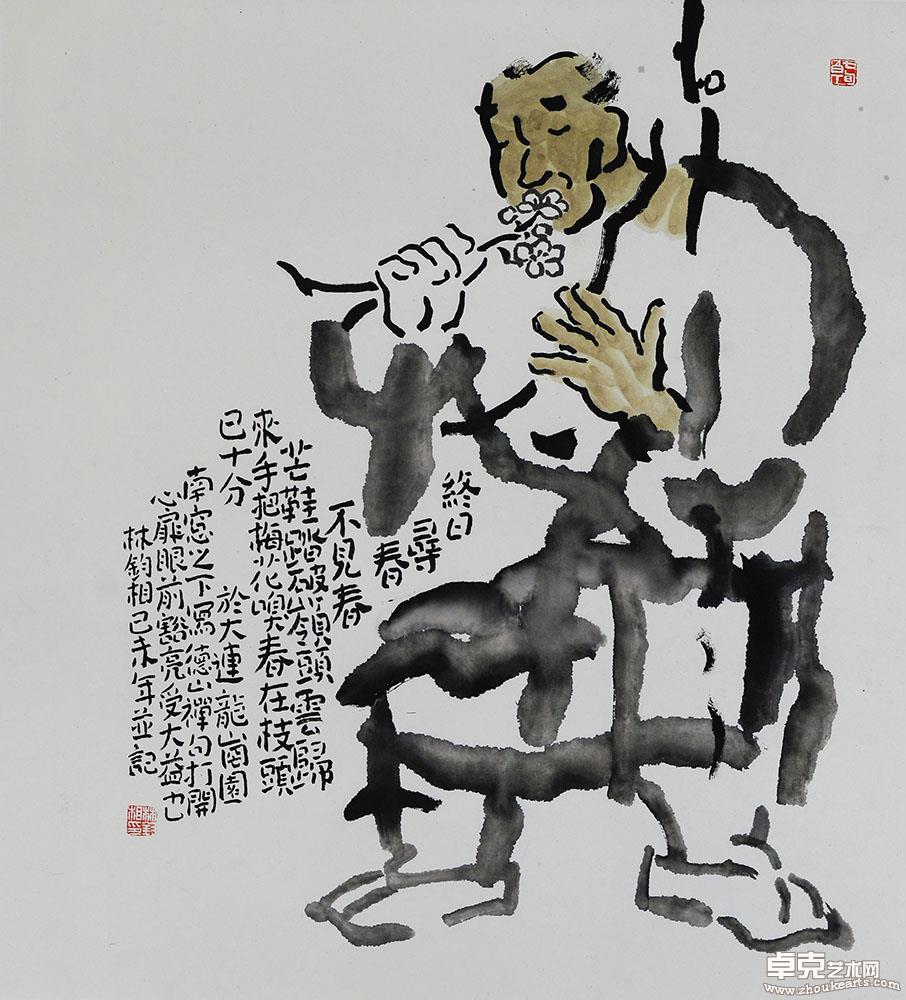 終日
尋
春
不見春
芒鞋踏破嶺頭雲歸
來手把梅花嗅春在枝頭
已十分
於大連龍崗園
南窓之下寫德山禪句打開
心扉眼前豁亮受大益也
林鈞相己未年並記
卓克艺术网
www.zhoukearts.com